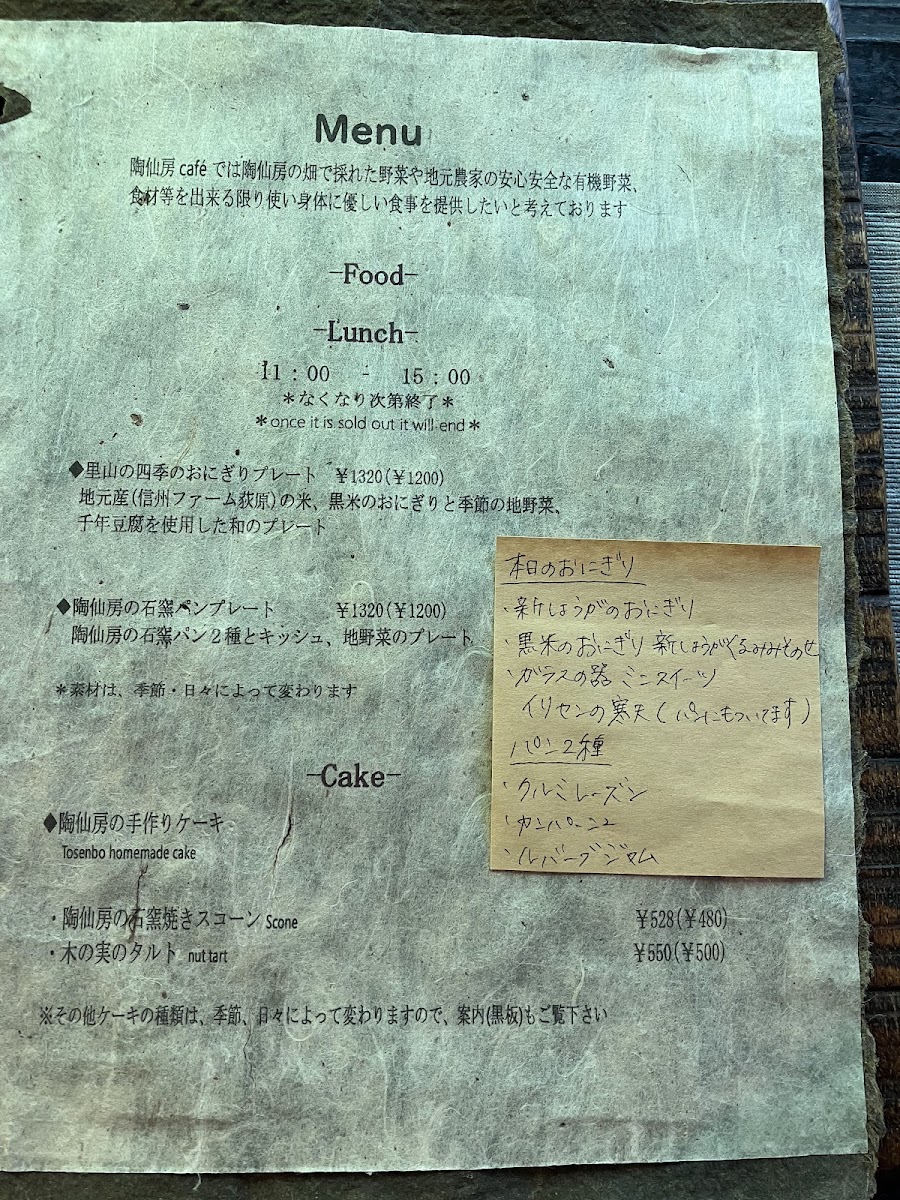 Menu
陶仙房 café では陶仙房の畑で採れた野菜や地元農家の安心安全な有機野菜、
食材等を出来る限り使い身体に優しい食事を提供したいと考えております
-Food-
-Lunch-
11：00 - 15：00
＊なくなり次第終了＊
＊once it is sold out it will end＊
◆里山の四季のおにぎりプレート ￥1320(￥1200)
地元産(信州ファーム荻原)の米、黒米のおにぎりと季節の地野菜、
千年豆腐を使用した和のプレート
◆陶仙房の石窯パンプレート ￥1320(￥1200)
陶仙房の石窯パン２種とキッシュ、地野菜のプレート
＊素材は、季節・日々によって変わります
本日のおにぎり
・新しょうがのおにぎり
・黒米のおにぎり 新しょうがくるみみそのせ
・ガラスの器 ミニスイーツ
イリセンの寒天(パンにもついてます)
パン2種
・クルミレーズン
・カンパーニュ
・ルバーブジャム
-Cake-
◆陶仙房の手作りケーキ
Tosenbo homemade cake
・陶仙房の石窯焼きスコーン Scone ￥528(￥480)
・木の実のタルト nut tart ￥550(￥500)
※その他ケーキの種類は、季節、日々によって変わりますので、案内(黒板)もご覧下さい